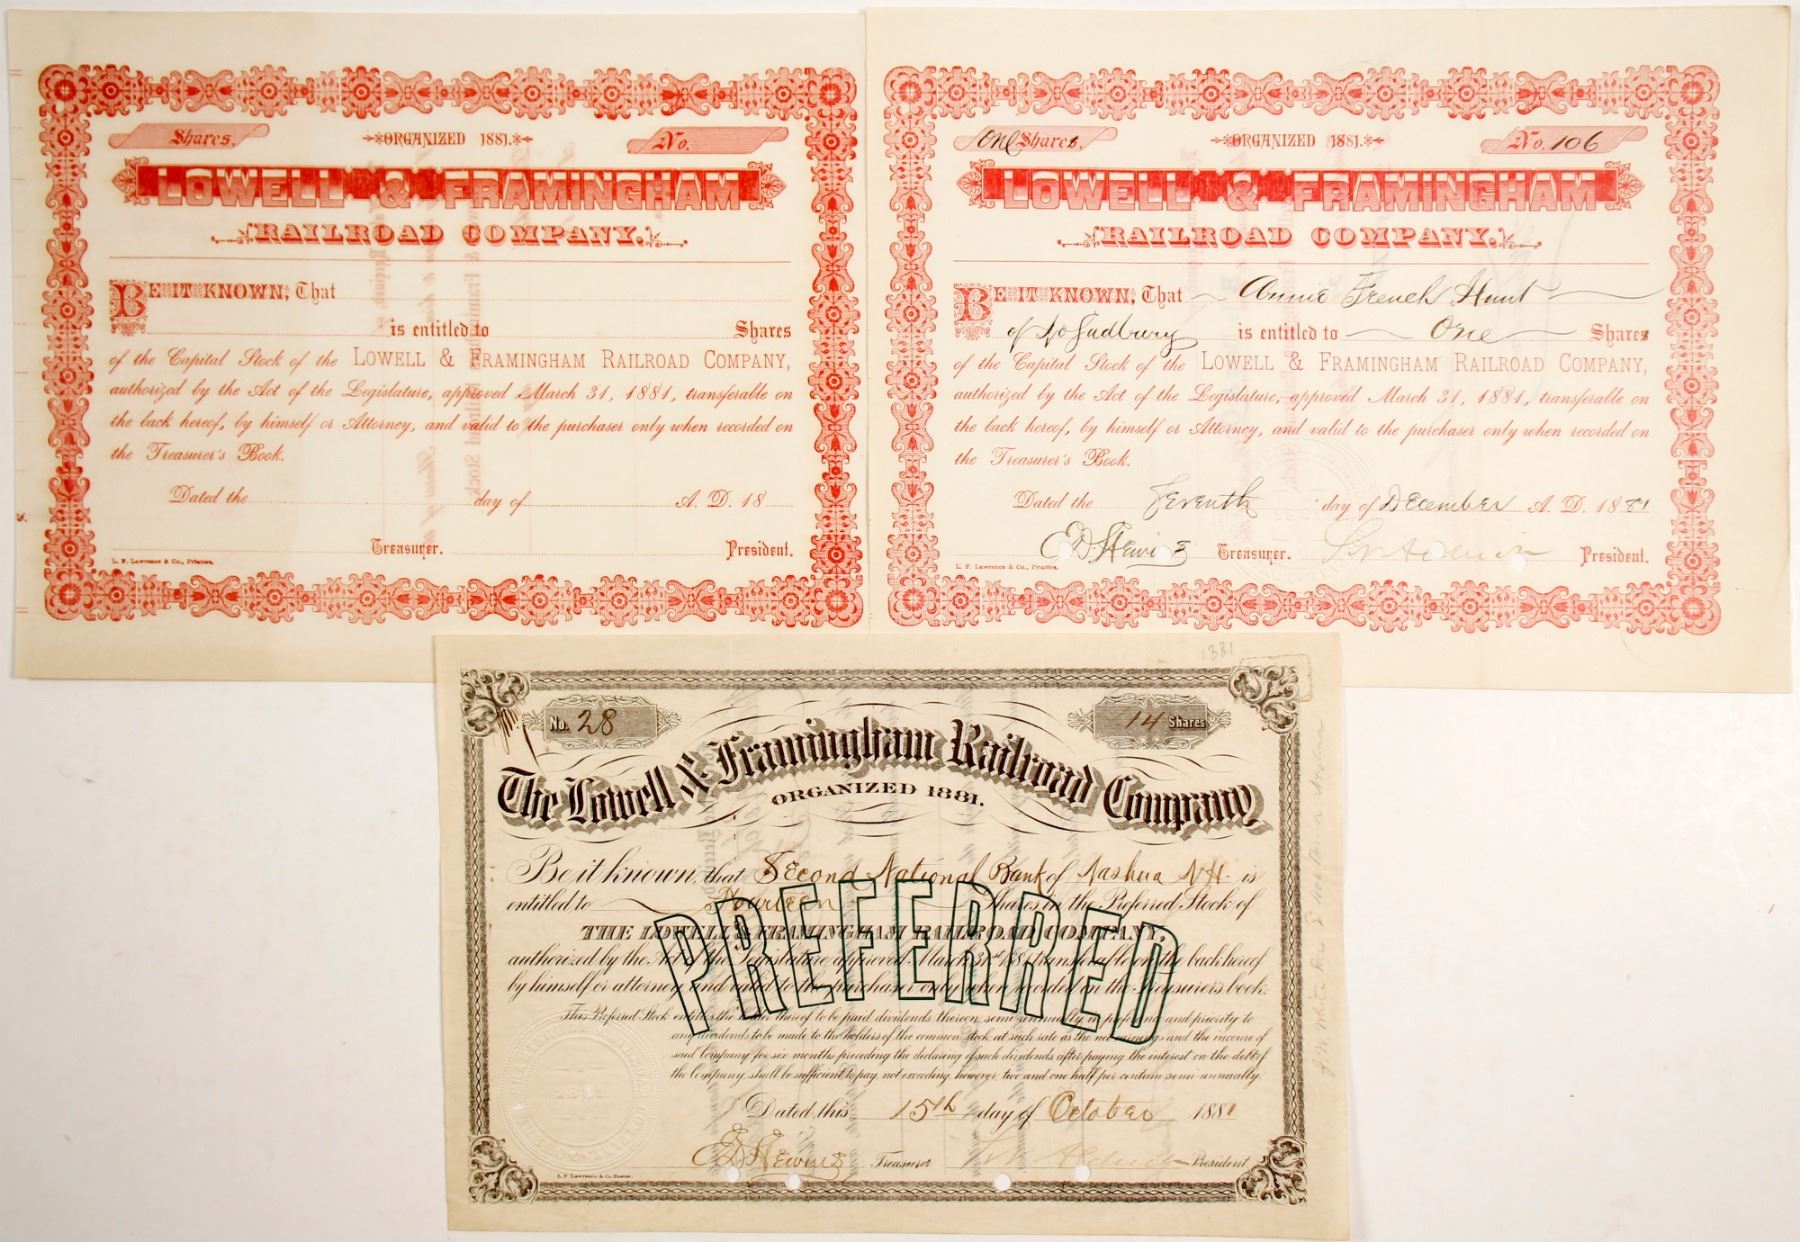 Shares.
ORGANIZED 1881.
No.
LOWELL & FRAMINGHAM
RAILROAD COMPANY.
BE IT KNOWN, That
is entitled to Shares
of the Capital Stock of the LOWELL & FRAMINGHAM RAILROAD COMPANY,
authorized by the Act of the Legislature, approved March 31, 1881, transferable on
the back hereof, by himself or Attorney, and valid to the purchaser only when recorded on
the Treasurer's Book.
Dated the day of A. D. 18
Treasurer. President.
L. F. Lawrence & Co., Printers.
One Shares.
ORGANIZED 1881.
No. 106
LOWELL & FRAMINGHAM
RAILROAD COMPANY.
BE IT KNOWN, That Annie French Hunt
of So Sudbury is entitled to One Shares
of the Capital Stock of the LOWELL & FRAMINGHAM RAILROAD COMPANY,
authorized by the Act of the Legislature, approved March 31, 1881, transferable on
the back hereof, by himself or Attorney, and valid to the purchaser only when recorded on
the Treasurer's Book.
Dated the Seventh day of December A. D. 1881
Treasurer. President.
L. F. Lawrence & Co., Printers.
1881
No. 28
14 Shares
The Lowell & Framingham Railroad Company
ORGANIZED 1881.
Be it known, that Second National Bank of Nashua N H. is
entitled to Fourteen Shares in the Preferred Stock of
THE LOWELL & FRAMINGHAM RAILROAD COMPANY,
authorized by the Act of the Legislature, approved March 31st 1881, transferable on the back hereof
by himself or attorney, and valid to the purchaser only when recorded on the Treasurer's book.
PREFERRED
This Preferred Stock entitles the holder thereof to be paid dividends thereon, semi-annually, in preference and priority to
any dividends to be made to the holders of the common stock at such rate as the net earnings and the income of
said Company for six months preceding the declaring of such dividends after paying the interest on the debt of
the Company shall be sufficient to pay, not exceeding, however, two and one half per centum semi-annually.
Dated, this 15th day of October 1881
Treasurer President
L. F. Lawrence & Co. Boston.